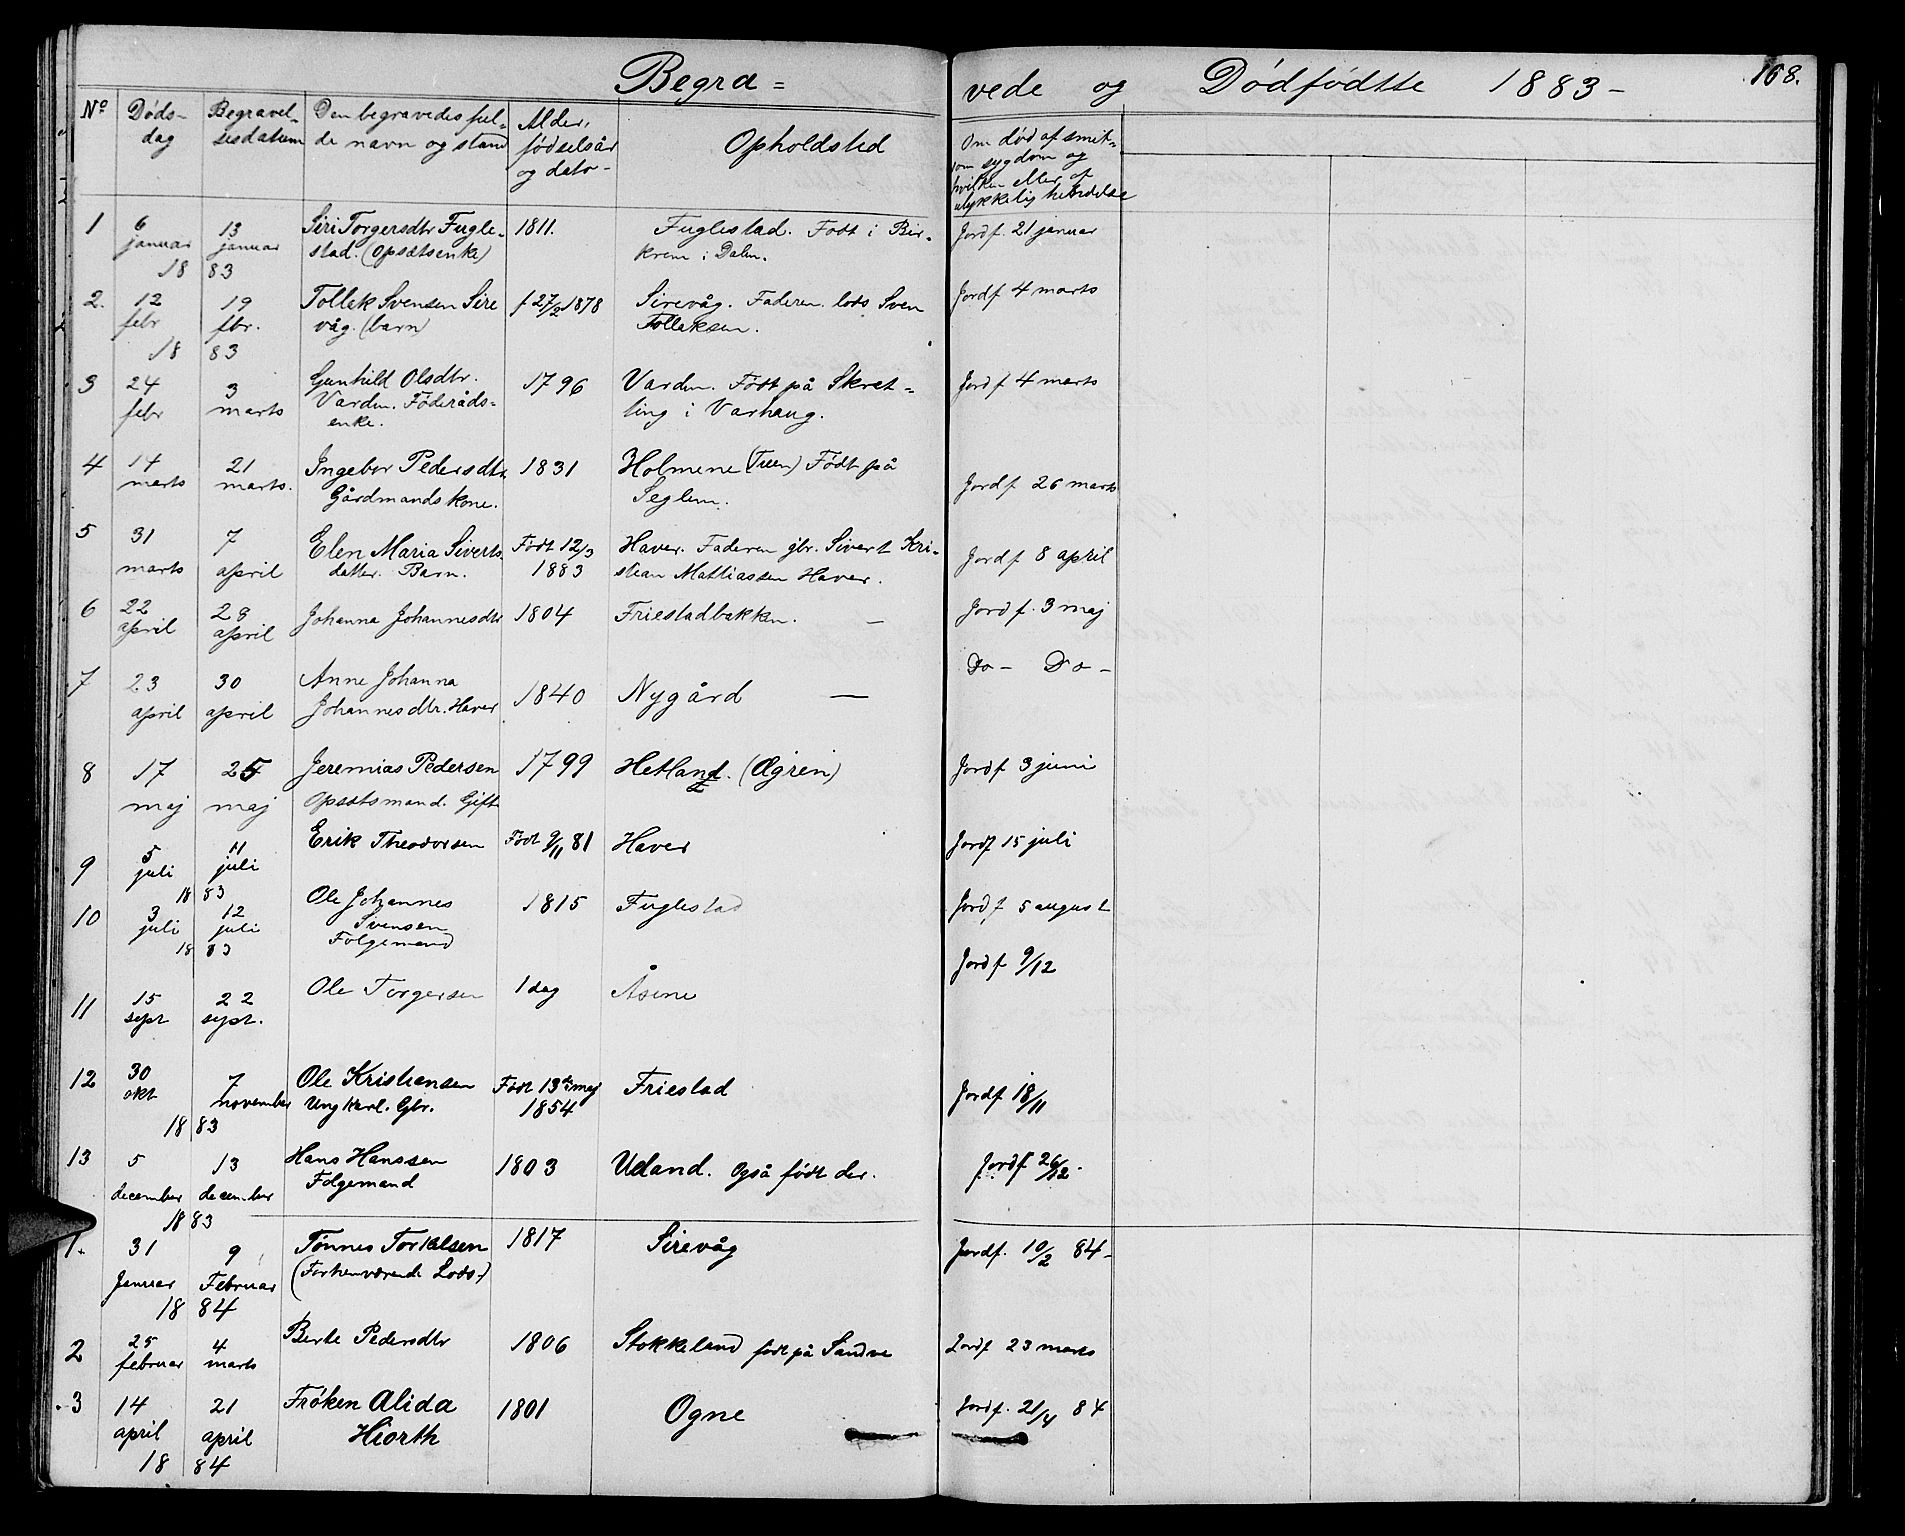 Begra= vede og Dødfødtte 1883- 168.
No Døds-dag Begravel-sesdatum Den begravedes ful-de navn og stand Alder, fødselsår og dato- Opholdsted Om død af smit=som sygdom og hvilken eller af ulykkelig hændelse
1 6 januar 13 januar Siri Torgersdtr Fugle- 1811. Fuglestad. Født i Bir- Jordf. 21 januar
18 83 stad. (Opsætsenke) krem i Dalen.
2. 12 febr 19 fbr. Tollak Svensen Sire f 27/2 1878 Sirevåg. Faderen lods Sven Jordf 4 marts
18 83 våg. (barn) Tollaksen.
3 24 febr 3 marts Gunhild Olsdtr. 1796 Varden. Født på Skret= Jordf 4 marts
Varden. Føderåds- ling i Varhaug.
enke.
4 14 marts 21 marts. Ingebor Pedersdtr. 1831 Holmene (Tuen) Født på Jordf 26 marts
Gårdmandskone. Seglem.
5 31 marts 7 april Elen Maria Siverts Født 12/3 Haver. Faderen gbr. Sivert Kri- Jordf 8 april
datter. Barn. 1883 stian Mattiassen Haver.
6 22 april 28 april Johanna Johannesdtr 1804 Friestadbakken. — Jordf. 3 maj
7 23 april 30 april Anne Johanna 1840 Nygård — Do- Do-
Johannesdtr. Haver
8 17 maj 25 maj Jeremias Pedersen 1799 Hetland. (Ægrein) Jordf 3 juni
Opsætsmand. Gift
9 5 juli 11 juli Erik Theodorsen Født 9/11 81 Haver Jordf 15 juli
18 83
10 3 juli 12 juli Ole Johannes 1815 Fuglestad Jordf 5 august
18 83 Svensen
Folgemand
11 15 sept 22 sept. Ole Torgersen 1 dag Åsene Jordf 9/12
12 30 okt 7 november Ole Kristiansen Født 13de maj Friestad Jordf 18/11
18 83 Ungkarl. Gbr. 1854
13 5 december 13 december Hans Hanssen 1803 Ueland. Også født der. Jordf 26/12.
18 83 Folgemand
1. 31 Januar 9 Februar Tønnes Torkelsen 1817 Sirevåg Jordf. 10/2 84-
18 84 (Forhenværende Lods.)
2 25 februar 4 marts Berte Pedersdtr 1806 Stokkeland født på Sandve Jordf 23 marts
3 14 april 21 april Frøken Alida 1801 Ogne Jordf. 21/4 84
18 84 Hiorth